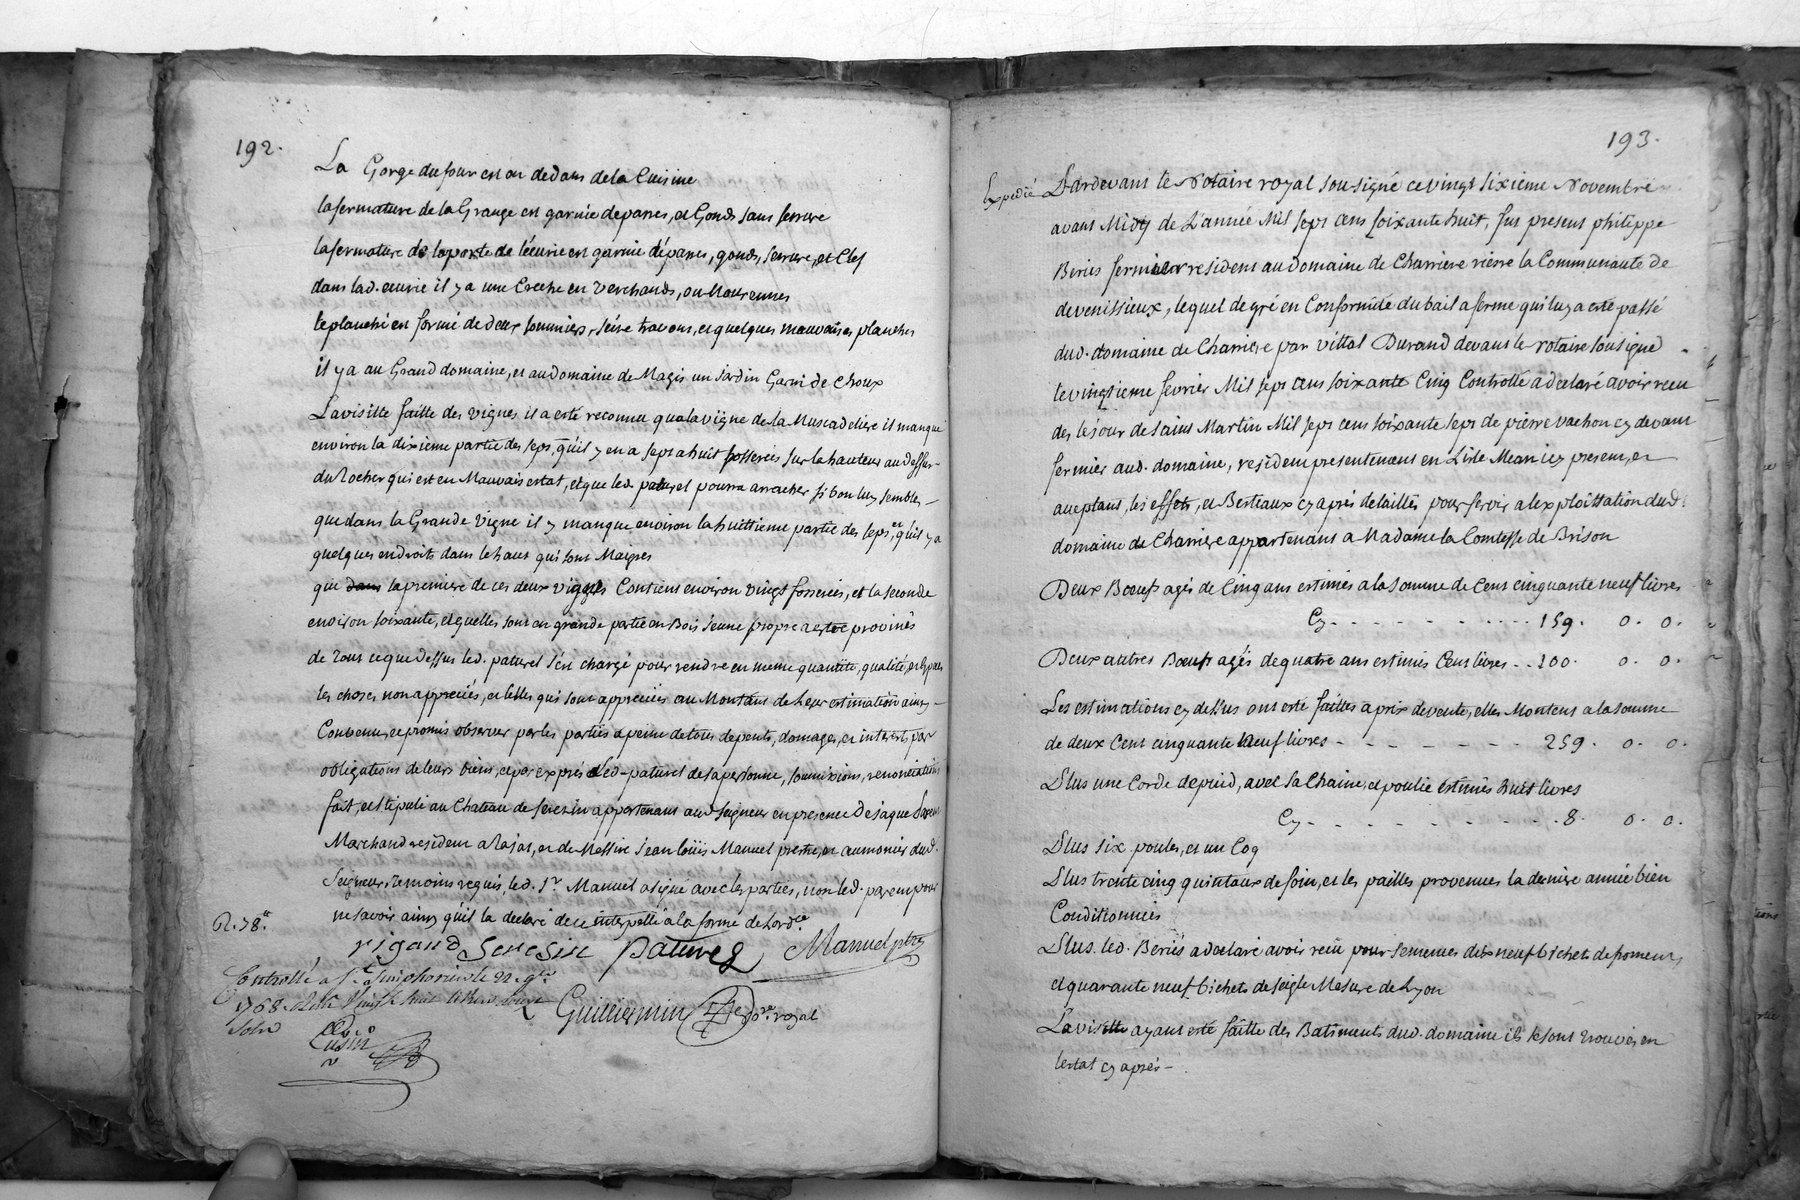 192.
La Gorge du four est au dedans de la Cuisine
la fermature de la Grange est garnie de panes, et Gonds sans serrure
la fermature de la porte de lécurie est garnie dépanes, gonds, serrure, et Clef
dans lad. eurie il y a une Creche en Verchands, ou Mourennes
le planché est formé de deux sommiers, seize travons, et quelques mauvaises planches
il y a au Grand domaine, et au domaine de Magis un Jardin Garni de Choux
La visitte faitte des vignes, il a esté reconnu qu'a la vigne de la Muscadeliere il manque
environ la dixieme partie des seps, qu'il y en a sept a huit fosserées sur la hauteur au dessus
du Rocher qui est en Mauvais estat, et que led. paturel pourra arracher si bon luy semble,
que dans la Grande Vigne il y manque environ la huittieme partie des seps, et qu'il y a
quelques endroits dans le haut qui sont Maigres
que dans la premiere de ces deux vignes Contient environ vingt fosserées, et la seconde
environ soixante, et quelles sont en grande partie en Bois Jeune propre a estre provinés
de Tout ce que dessus led. paturel s'est chargé pour rendre en meme quantité, qualité, et Espece
les choses non appreciées, et celles qui sont appreciées au Montant de Leur estimation ainsy
Convenu, et promis observer par les parties a peine de tous depents, domages, et interests par
obligations de leurs biens, et par exprés led. paturel de sa personne, soumissions, renonciations
fait, et stipulé au Chateau de Seresin appartenant aud. Seigneur en presence de Jaque
Marchand resident a Rajat, et de Messire Jean Loüis Manuel prestre, et aumonier dud.
Seigneur, Temoins requis, led. Sr. Manuel a signé avec les parties, non led. par en pour
ne savoir ainsy qu'il la declaré de ce interpellé a la forme de Lord.ce
R. 78.
rigaud Seresin paturel Manuel ptre
Controllé a St. Simphorien le 22. 9bre
1768. Reçu
Solu
Guilliermin No.re royal
193.
Expedié
Pardevant le Notaire royal sousigné ce vingt sixieme Novembre
avant Midy de L'année Mil sept cent soixante huit, fut present philippe
Beriés fermier resident au domaine de Charriere riere la Communauté de
de venissieux, lequel de gré en Conformité du bail a ferme qui luy a esté passé
dud. domaine de Charriere par Vittal Durand devant le notaire sousigné
le vingtieme fevrier Mil sept cent soixante Cinq Controllé a declaré avoir receu
des le jour de saint Martin Mil sept cent soixante sept de pierre vachon cy devant
fermier aud. domaine, resident presentement en Lisle Mean icy present, et
aceptant, les effets, et Bestiaux cy aprés detaillés pour servir a lexploittation dud.
domaine de Charriere appartenant a Madame la Comtesse de Brison
Deux Boeufs agés de Cinq ans estimés a la somme de Cent cinquante neuf livres
Cy - - - - 159. 0. 0.
Deux autres Boeufs agés de quatre ans estimés Cent livres - - 100. 0. 0.
Les estimations cy dessus ont esté faittes a prix de vente, elles Montent a la somme
de deux Cent cinquante Neuf livres - - - - 259. 0. 0.
Plus une Corde de puid, avec sa Chaine, et poulie estimés huit livres
Cy - - - - 8. 0. 0.
Plus six poules, et un Coq
Plus trente cinq quintaux de foin, et les pailles provenues la derniere année bien
Conditionnées
Plus led. Beriés a declaré avoir reçû pour semences dix neuf bichets de froment,
et quarante neuf bichets de seigle Mesure de Lyon
La visitte ayant esté faitte des Batiments dud. domaine ils se sont trouvés en
lestat cy aprés -